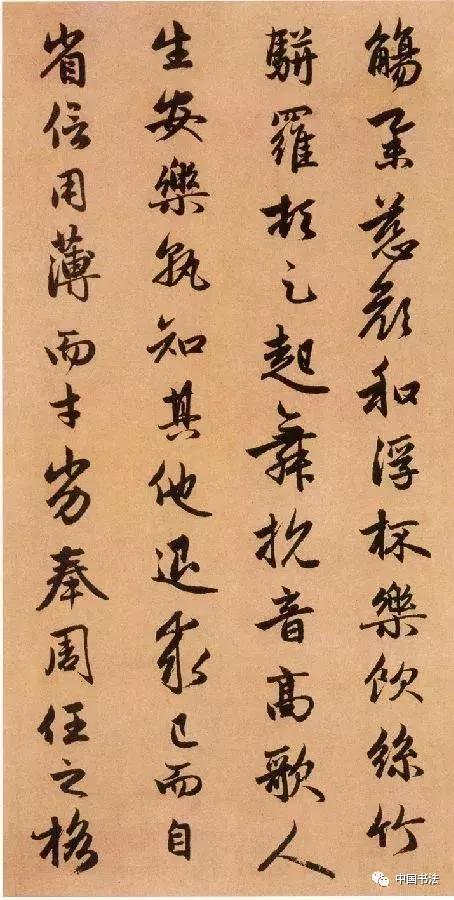 觴舉慈顏和浮杯樂飲絲竹
駢羅頓足起舞抗音高歌人
生安樂孰知其他退求己而自
省信用薄而才劣奉周任之格
中国书法